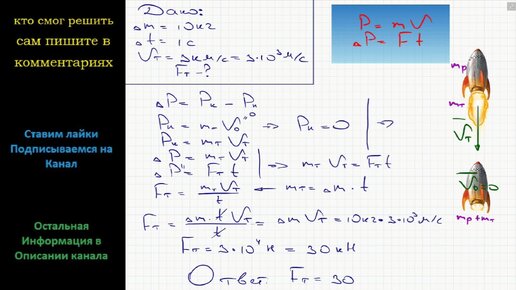 кто смог решить
сам пишите в
комментариях
Ставим лайки
Подписываемся на
Канал
Остальная
Информация в
Описании канала
Дано:
Δm = 10 кг
Δt = 1 с
V_т = 3 км/с = 3·10³ м/с
F_т - ?
P = mV
ΔP = Ft
ΔP = P_к - P_н
P_н = m V_0 => P_н = 0 =>
P_к = m_т V_т
ΔP = m_т V_т
ΔP = F t => m_т V_т = F_т t
F_т = m_т V_т / t ← m_т = Δm · t
F_т = Δm · t V_т / t = Δm V_т = 10 кг · 3·10³ м/с
F_т = 3·10⁴ Н = 30 кН
Ответ: F_т = 30
m_р
m_т
V_т
V_0 = 0
m_р + m_т